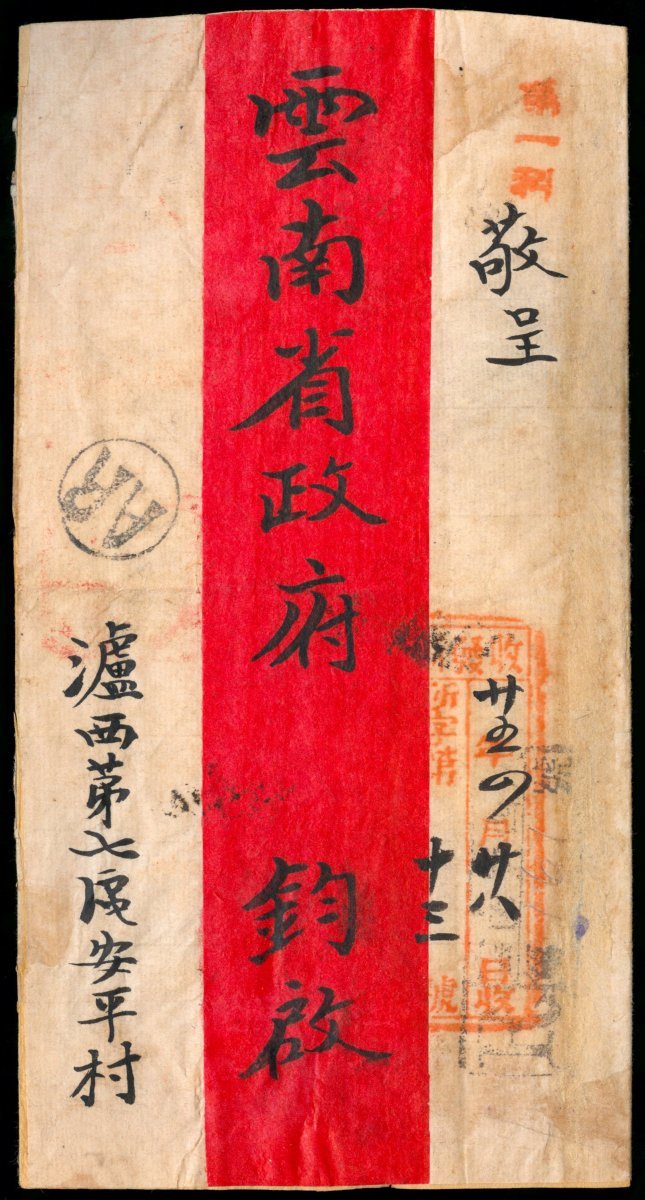 第一科
敬呈
收發
年 月 日收
所字第 號
廿五 四 廿八
十三
雲南省政府 鈞啟
AR
瀘西第七区安平村